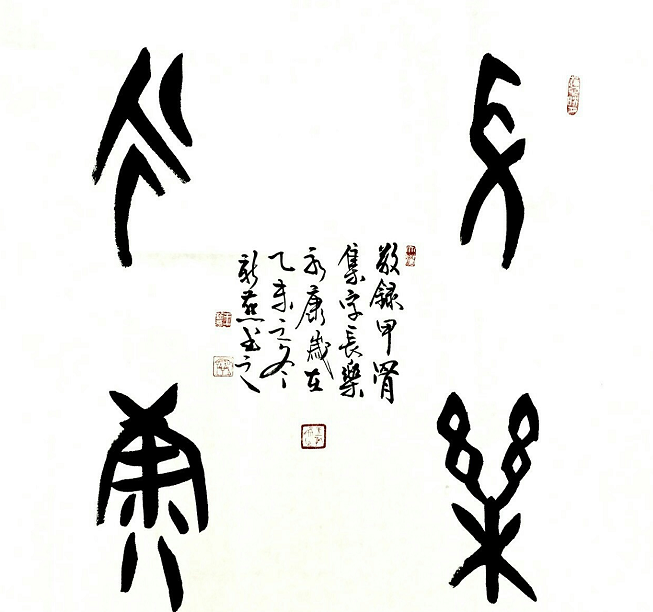 長樂
永康
敬錄甲骨
集字長樂
永康歲在
乙未之冬
新燕書之